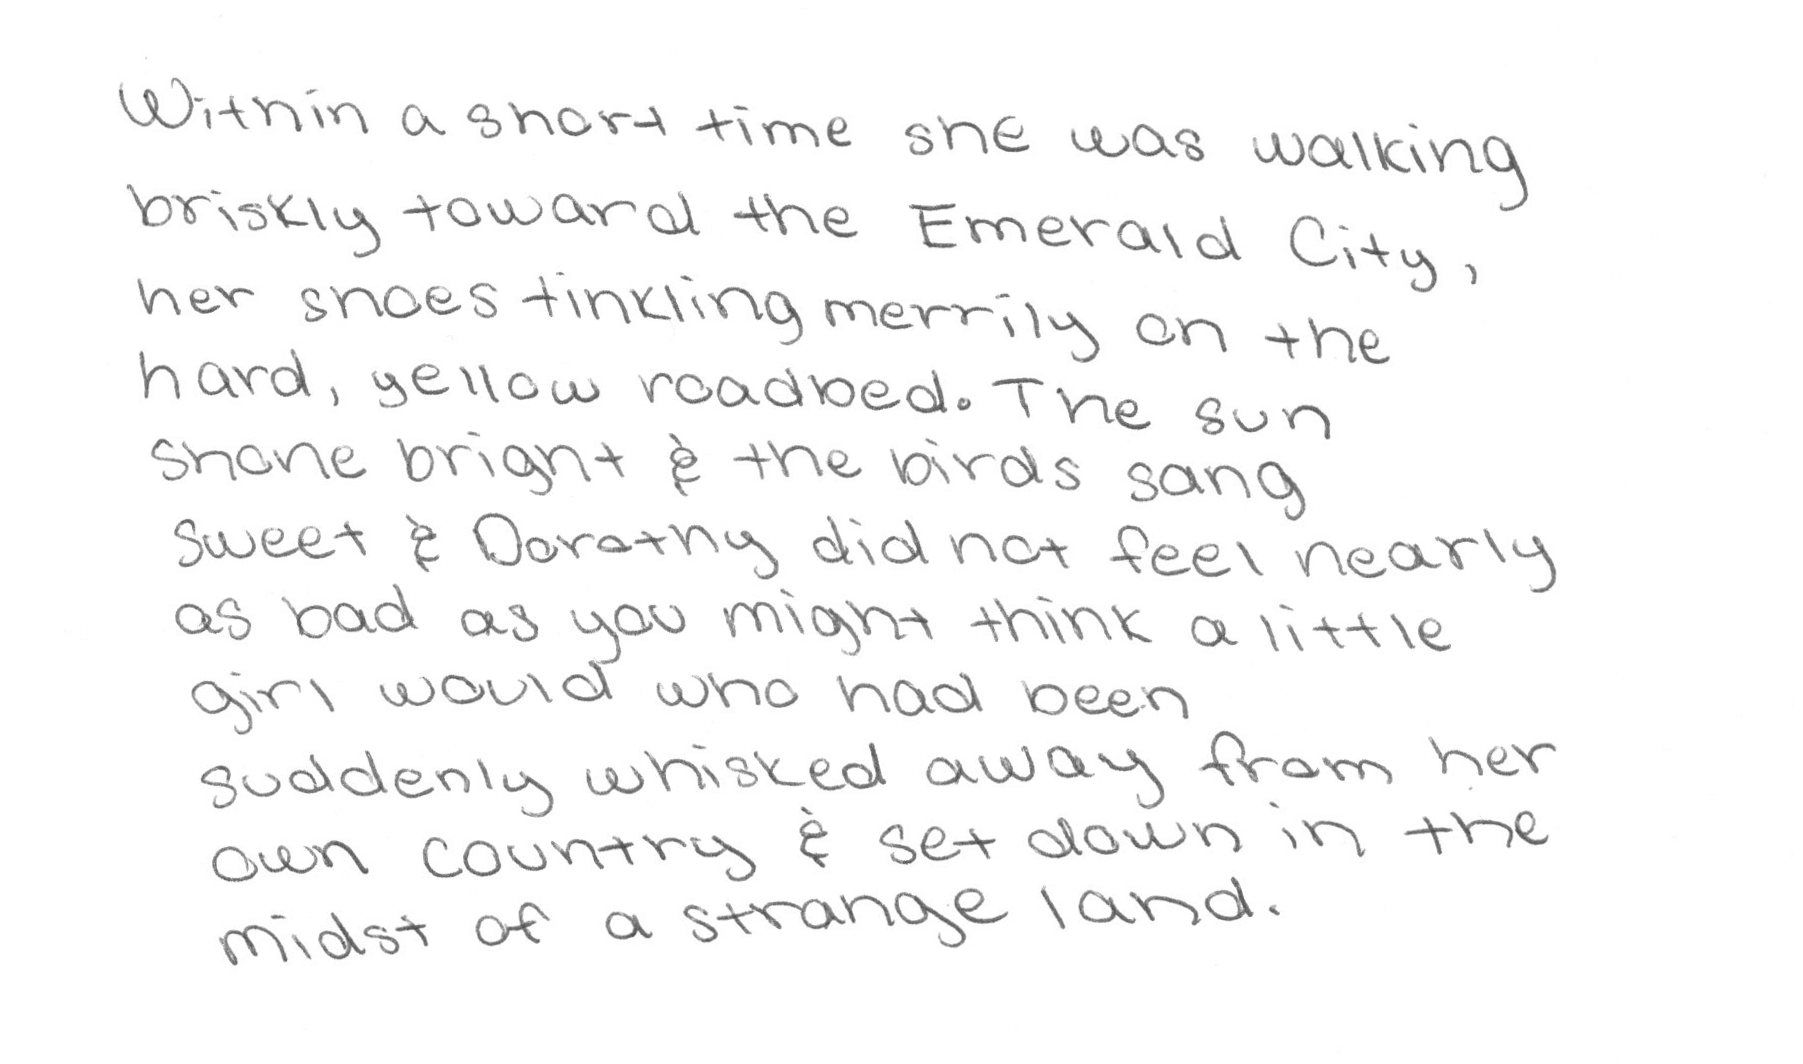 Within a short time she was walking
briskly toward the Emerald City,
her shoes tinkling merrily on the
hard, yellow roadbed. The sun
shone bright & the birds sang
sweet & Dorothy did not feel nearly
as bad as you might think a little
girl would who had been
suddenly whisked away from her
own country & set down in the
midst of a strange land.